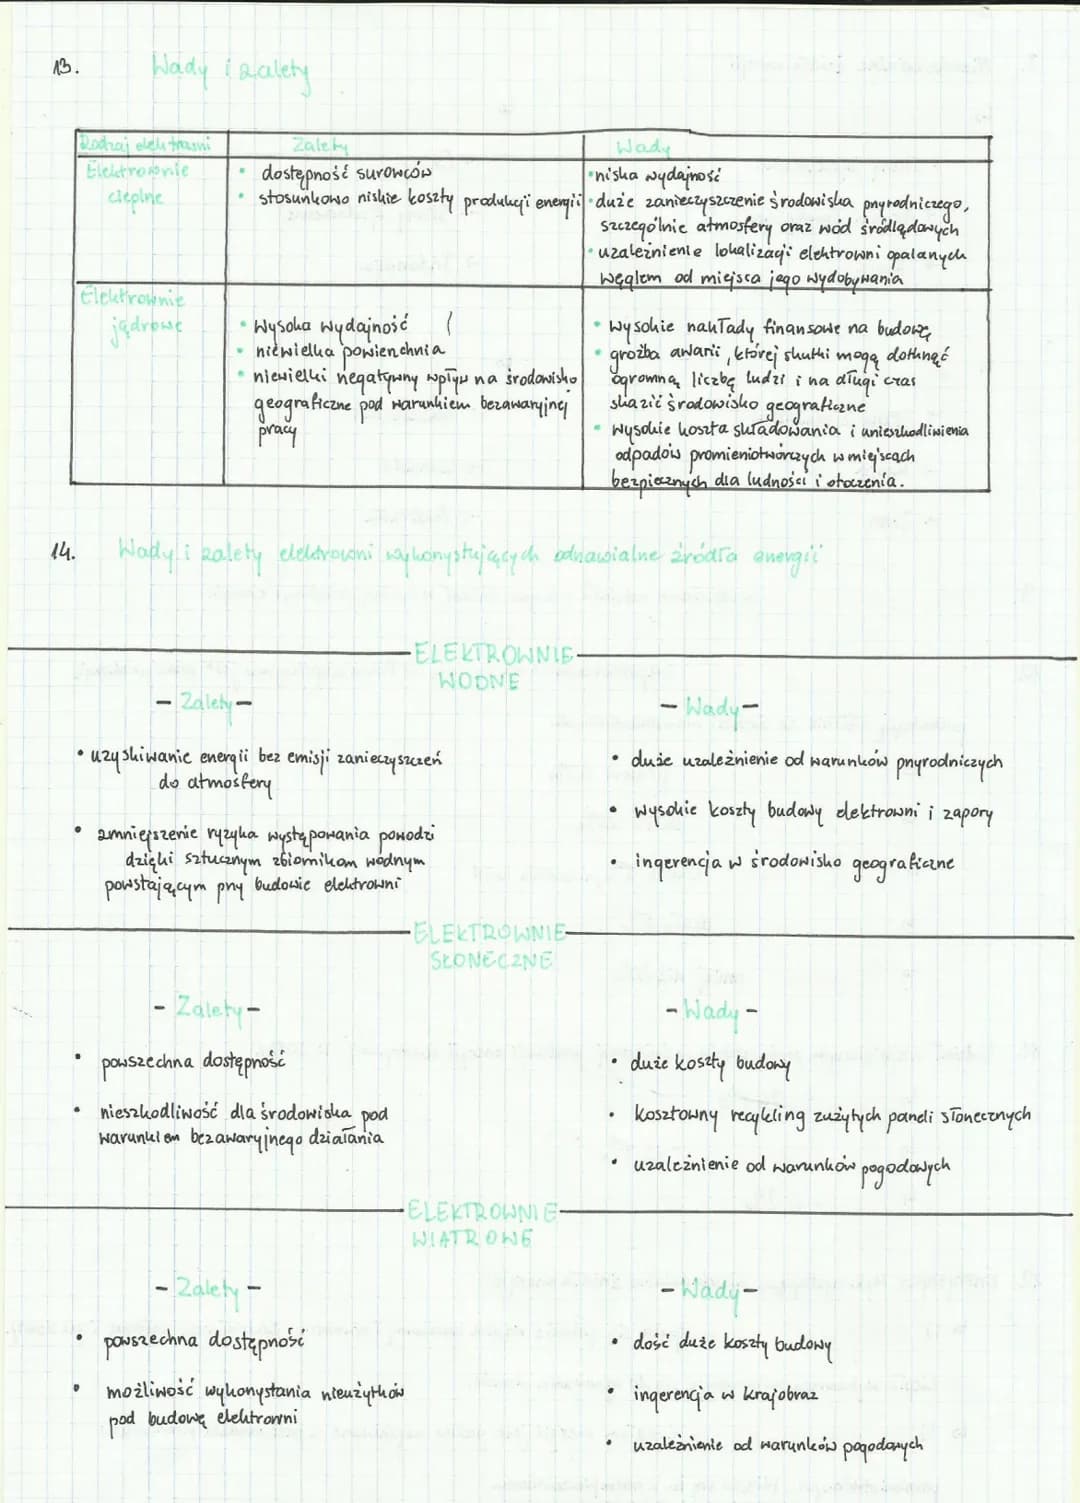 13. Wady i zalety
Rodzaj elektrowni
Zalety
Wady
Elektrownie
cieplne
• dostępność surowców
• stosunkowo niskie koszty produkcji energii
• niska wydajność
• duże zanieczyszczenie środowiska przyrodniczego,
szczególnie atmosfery oraz wód śródlądowych
• uzależnienie lokalizacji elektrowni opalanych
węglem od miejsca jego wydobywania
Elektrownie
jądrowe
• wysoka wydajność
• niewielka powierzchnia
• niewielki negatywny wpływ na środowisko
geograficzne pod warunkiem bezawaryjnej
pracy
• wysokie nakłady finansowe na budowę
• groźba awarii, której skutki mogą dotknąć
ogromną liczbę ludzi i na długi czas
skazić środowisko geograficzne
• wysokie koszta składowania i unieszkodliwienia
odpadów promieniotwórczych w miejscach
bezpiecznych dla ludności i otoczenia.
14. Wady i zalety elektrowni wykorzystujących odnawialne źródła energii
ELEKTROWNIE
WODNE
- Zalety -
• uzyskiwanie energii bez emisji zanieczyszczeń
do atmosfery
• zmniejszenie ryzyka występowania powodzi
dzięki sztucznym zbiornikom wodnym
powstającym przy budowie elektrowni
- Wady -
• duże uzależnienie od warunków przyrodniczych
• wysokie koszty budowy elektrowni i zapory
• ingerencja w środowisko geograficzne
ELEKTROWNIE
SŁONECZNE
- Zalety -
• powszechna dostępność
• nieszkodliwość dla środowiska pod
warunkiem bezawaryjnego działania
- Wady -
• duże koszty budowy
• kosztowny recykling zużytych paneli słonecznych
• uzależnienie od warunków pogodowych
ELEKTROWNIE
WIATROWE
- Zalety -
• powszechna dostępność
• możliwość wykorzystania nieużytków
pod budowę elektrowni
- Wady -
• dość duże koszty budowy
• ingerencja w krajobraz
• uzależnienie od warunków pogodowych